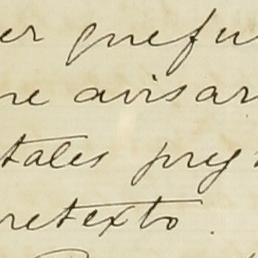 er quefu
me avisar
tales preg
retexto.